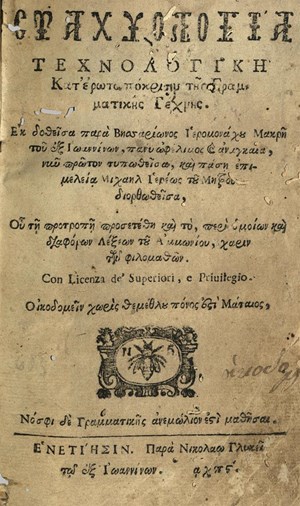 ΣΤΑΧΥΟΛΟΓΙΑ
ΤΕΧΝΟΛΟΓΙΚΗ
Κατ' ἐρωταπόκρισιν τῆς Γραμ-
ματικῆς Τέχνης.
Ἐκδοθεῖσα παρὰ Βησσαρίωνος Ἱερομονάχου Μακρῆ
τοῦ ἐξ Ἰωαννίνων, πάνυ ὠφέλιμος ἀναγκαία,
νῦν πρῶτον τυπωθεῖσα, καὶ πάσῃ ἐπι-
μελείᾳ Μιχαὴλ Ἱερέως τοῦ
διορθωθεῖσα,
Οὗ τῇ προτροπῇ προσετέθη καὶ τὸ, περὶ ὁμοίων καὶ
διαφόρων Λέξεων τοῦ Ἀμμωνίου, χάριν
τῶν φιλομαθῶν.
Con Licenza de' Superiori, e Priuilegio.
Οἰκοδομεῖν χωρὶς θεμέθλου πόνος ἐστὶ Μάταιος,
N G
Νόσφι δὲ Γραμματικῆς ἀνεμώλιόν ἐστι μαθῆσαι.
ἘΝΕΤΙΗΣΙΝ. Παρὰ Νικολάῳ Γλυκεῖ
τῷ ἐξ Ἰωαννίνων. αχπς